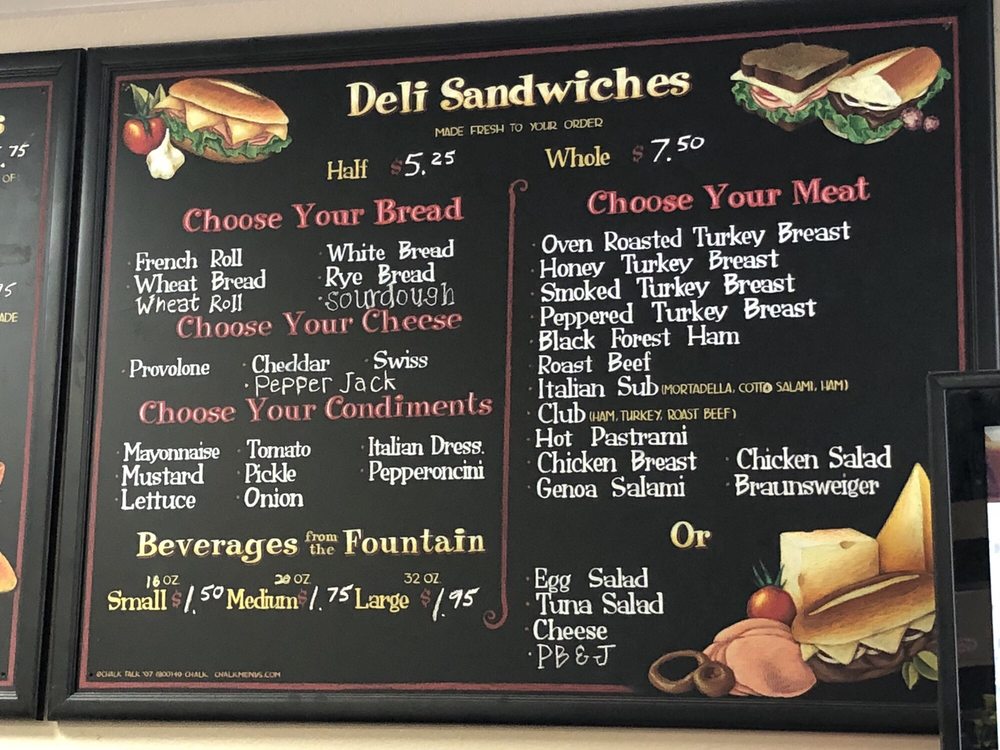 Deli Sandwiches
MADE FRESH TO YOUR ORDER
Half $5.25 Whole $7.50
Choose Your Bread
· French Roll · White Bread
· Wheat Bread · Rye Bread
· Wheat Roll · sourdough
Choose Your Cheese
· Provolone · Cheddar · Swiss
· Pepper Jack
Choose Your Condiments
· Mayonnaise · Tomato · Italian Dress.
· Mustard · Pickle · Pepperoncini
· Lettuce · Onion
Beverages from the Fountain
16 OZ 20 OZ 32 OZ
Small $1.50 Medium $1.75 Large $1.95
©CHALK TALK '07 CHALKMENUS.COM
Choose Your Meat
· Oven Roasted Turkey Breast
· Honey Turkey Breast
· Smoked Turkey Breast
· Peppered Turkey Breast
· Black Forest Ham
· Roast Beef
· Italian Sub (MORTADELLA, COTTO SALAMI, HAM)
· Club (HAM, TURKEY, ROAST BEEF)
· Hot Pastrami
· Chicken Breast · Chicken Salad
· Genoa Salami · Braunsweiger
Or
· Egg Salad
· Tuna Salad
· Cheese
· PB&J